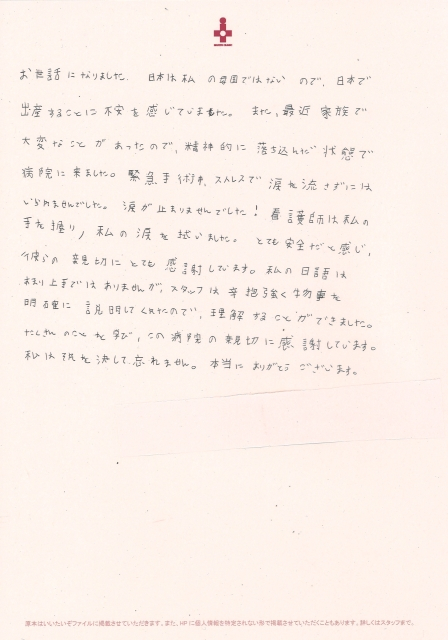 お世話になりました。日本は私の母国ではないので、日本で
出産することに不安を感じていました。また、最近家族で
大変なことがあったので、精神的に落ち込んだ状態で
病院に来ました。緊急手術中、ストレスで涙を流さずには
いられませんでした。涙が止まりませんでした！看護師は私の
手を握り、私の涙を拭いました。とても安全だと感じ、
彼らの親切にとても感謝しています。私の日語は
あまり上手ではありませんが、スタッフは辛抱強く物事を
明確に説明してくれたので、理解することができました。
たくさんのことを学び、この病院の親切に感謝しています。
私は決して忘れません。本当にありがとうございます。
原本はいいたいぞファイルに掲載させていただきます。また、HPに個人情報を特定されない形で掲載させていただくこともあります。詳しくはスタッフまで。